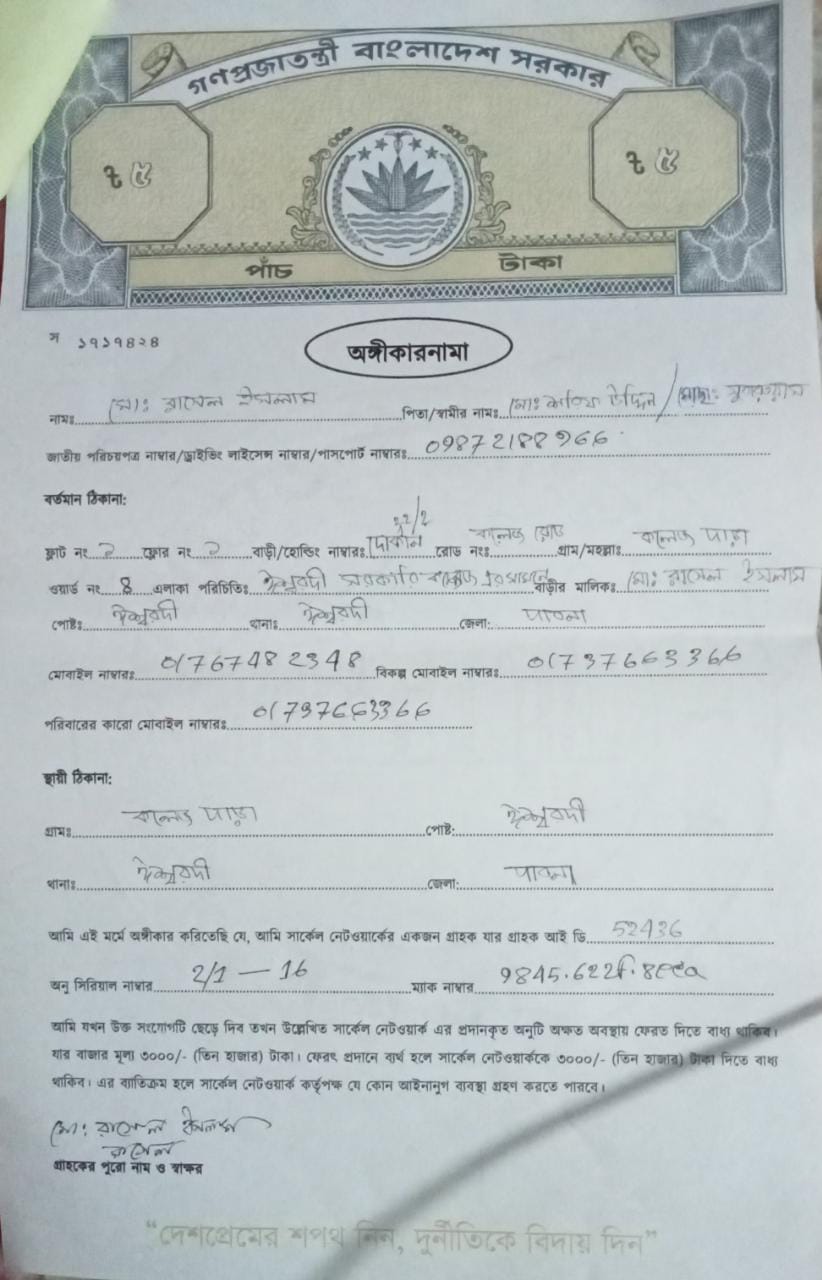 গণপ্রজাতন্ত্রী বাংলাদেশ সরকার
৳ ৫ ৳ ৫
পাঁচ টাকা
স ১৭১৭৪২৪
অঙ্গীকারনামা
নামঃ মোঃ রাসেল ইসলাম পিতা/স্বামীর নামঃ মোঃ উদ্দিন / মোছাঃ
জাতীয় পরিচয়পত্র নাম্বার/ড্রাইভিং লাইসেন্স নাম্বার/পাসপোর্ট নাম্বারঃ
বর্তমান ঠিকানা:
ফ্লাট নং ফ্লোর নং বাড়ী/হোল্ডিং নাম্বারঃ দোকান রোড নংঃ কলেজ রোড গ্রাম/মহল্লাঃ কলেজ পাড়া
ওয়ার্ড নং এলাকা পরিচিতিঃ ঈশ্বরদী সরকারি কলেজ এর সামনে বাড়ীর মালিকঃ মোঃ রাসেল ইসলাম
পোষ্টঃ ঈশ্বরদী থানাঃ ঈশ্বরদী জেলা: পাবনা
মোবাইল নাম্বারঃ 01767482348 বিকল্প মোবাইল নাম্বারঃ 01737663366
পরিবারের কারো মোবাইল নাম্বারঃ 01737663366
স্থায়ী ঠিকানা:
গ্রামঃ কলেজ পাড়া পোষ্ট: ঈশ্বরদী
থানাঃ ঈশ্বরদী জেলা: পাবনা
আমি এই মর্মে অঙ্গীকার করিতেছি যে, আমি সার্কেল নেটওয়ার্কের একজন গ্রাহক যার গ্রাহক আই ডি 52436
অনু সিরিয়াল নাম্বার 2/1 — 16 ম্যাক নাম্বার
আমি যখন উক্ত সংযোগটি ছেড়ে দিব তখন উল্লেখিত সার্কেল নেটওয়ার্ক এর প্রদানকৃত অনুটি অক্ষত অবস্থায় ফেরত দিতে বাধ্য থাকিব।
যার বাজার মূল্য ৩০০০/- (তিন হাজার) টাকা। ফেরৎ প্রদানে ব্যর্থ হলে সার্কেল নেটওয়ার্ককে ৩০০০/- (তিন হাজার) টাকা দিতে বাধ্য
থাকিব। এর ব্যতিক্রম হলে সার্কেল নেটওয়ার্ক কর্তৃপক্ষ যে কোন আইনানুগ ব্যবস্থা গ্রহণ করতে পারবে।
মোঃ রাসেল ইসলাম
রাসেল
গ্রাহকের পুরো নাম ও স্বাক্ষর
“দেশপ্রেমের শপথ নিন, দুর্নীতিকে বিদায় দিন”